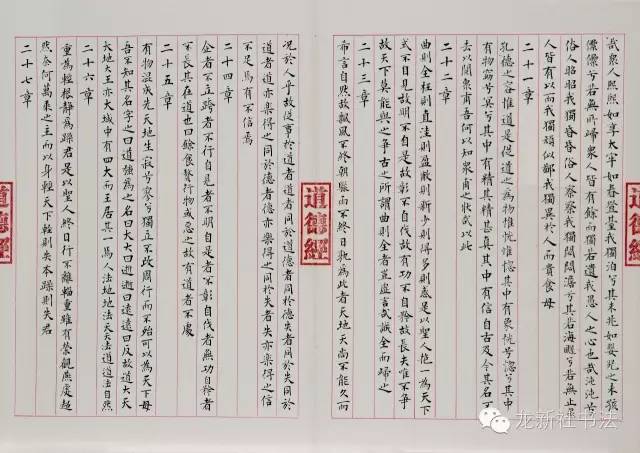 道德經
哉衆人熙熙如享太宰如春登臺我獨泊兮其未兆如嬰兒之未孩
儽儽兮若無所歸衆人皆有餘而獨右遺我愚人之心也哉沌沌兮
俗人昭昭我獨昏昏俗人察察我獨悶悶澹兮其若海飂兮若無止
人皆有以而我獨頑似鄙我獨異於人而貴食母
二十一章
孔德之容惟道是從道之為物惟恍惟惚其中有象恍兮惚兮其中
有物窈兮冥兮其中有精其精甚真其中有信自古及今其名不
去以閱衆甫吾何以知衆甫之狀哉以此
二十二章
曲則全枉則直洼則盈敝則新少則得多則惑是以聖人抱一為天下
式不自見故明不自是故彰不自伐故有功不自矜故長夫唯不爭
故天下莫能與之爭古之所謂曲則全者豈虛言哉誠全而歸之
二十三章
希言自然故飄風不終朝驟雨不終日孰為此者天地天尚不能久而
道德經
況於人乎故從事於道者道者同於道德者同於德失者同於失同於
道者道亦樂得之同於德者德亦樂得之同於失者失亦樂得之信
不足焉有不信焉
二十四章
企者不立跨者不行自見者不明自是者不彰自伐者無功自矜者
不長其在道也曰餘食贅行物或惡之故有道者不處
二十五章
有物混成先天地生寂兮寥兮獨立不改周行而不殆可以為天下母
吾不知其名字之曰道強為之名曰大大曰逝逝曰遠遠曰反故道大天
大地大王亦大域中有四大而王居其一焉人法地地法天天法道道法自然
二十六章
重為輕根靜為躁君是以聖人終日行不離輜重雖有榮觀燕處超
然奈何萬乘之主而以身輕天下輕則失本躁則失君
二十七章
道德經
龙新社书法